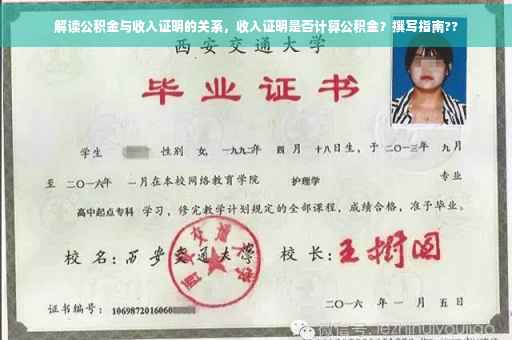 解读公积金与收入证明的关系，收入证明是否计算公积金？撰写指南??
西安交通大学
毕业证书
学生 性别 女，一九九二年 四月 十八日生，于二〇一三年 九月
至 二〇一六年 一月在本校网络教育学院 护理学 专业
高中起点专科 学习，修完教学计划规定的全部课程，成绩合格，准予毕业。
校名：西安交通大学 校长：王树国
西安交通大学
证书编号：1069872016060
二〇一六年 一月 五日
微信号: jezhihuiyoujiao